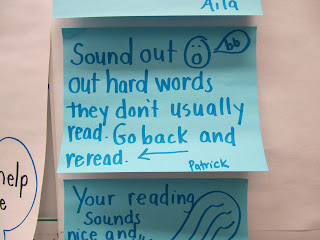 Aila
Sound out bb
out hard words
they don't usually
read. Go back and
reread.
Patrick
help
e
Your reading
sounds
nice and